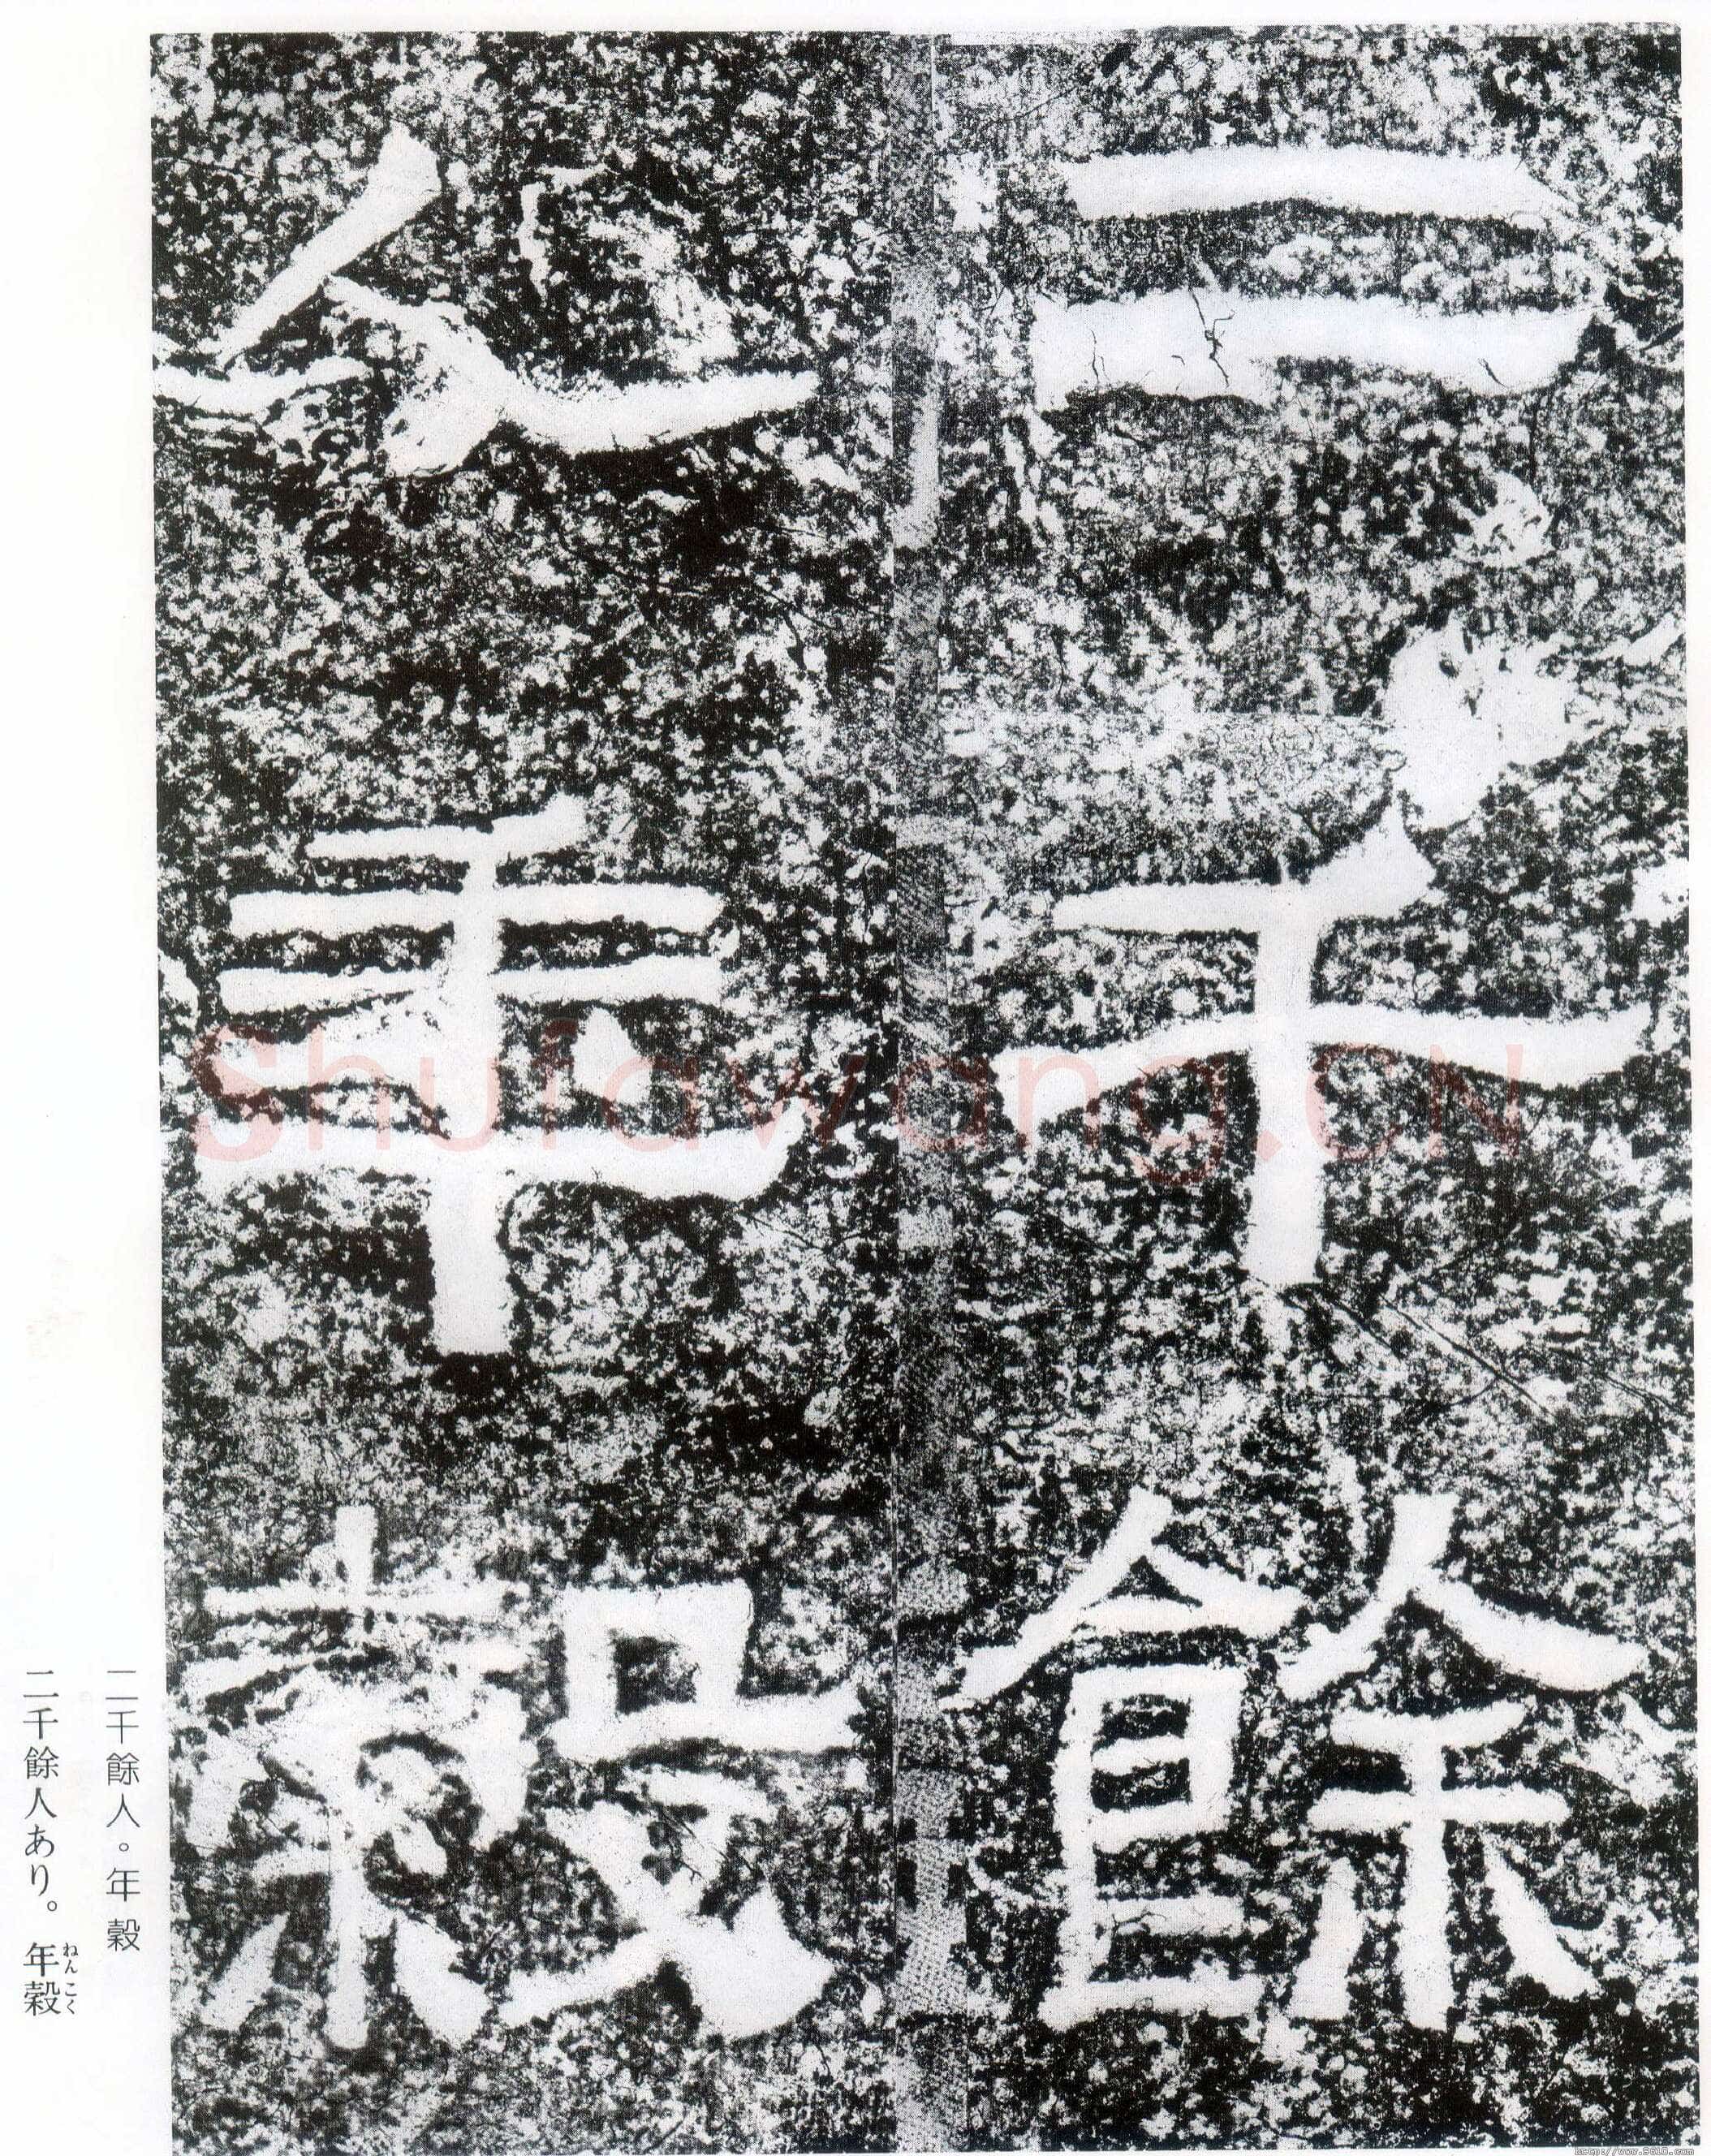 二千餘
人年穀
二千餘人。年穀
二千餘人あり。年穀
ねんこく
Shufawang.CN